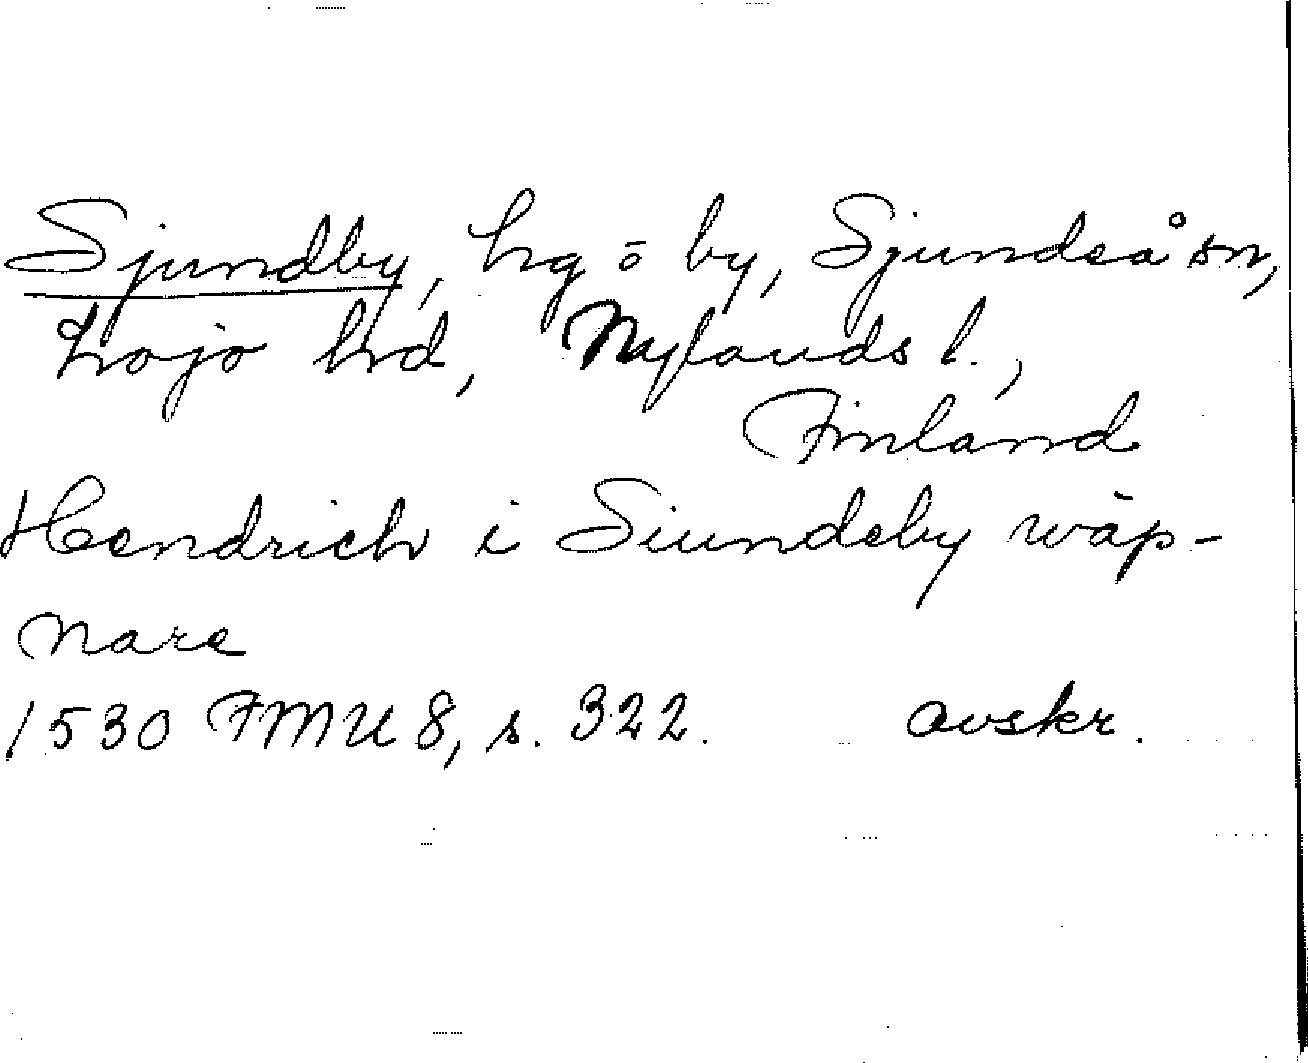 Sjundby, hg o by, Sjundeå sn,
Lojo hd, Nylands l.,
Finland
Hendrich i Siundeby wäp-
nare
1530 FMU 8, s. 322. avskr.